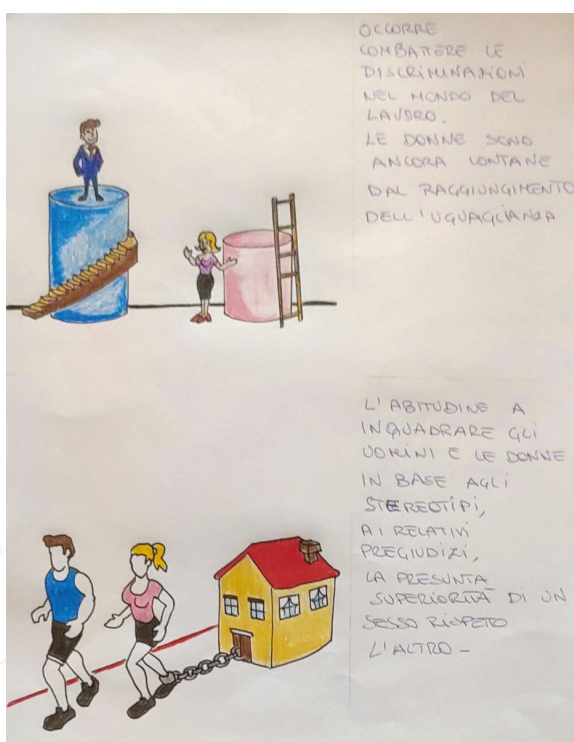 OCCORRE
COMBATTERE LE
DISCRIMINAZIONI
NEL MONDO DEL
LAVORO.
LE DONNE SONO
ANCORA LONTANE
DAL RAGGIUNGIMENTO
DELL'UGUAGLIANZA
L'ABITUDINE A
INQUADRARE GLI
UOMINI E LE DONNE
IN BASE AGLI
STEREOTIPI,
AI RELATIVI
PREGIUDIZI,
LA PRESUNTA
SUPERIORITÀ DI UN
SESSO RISPETO
L'ALTRO -